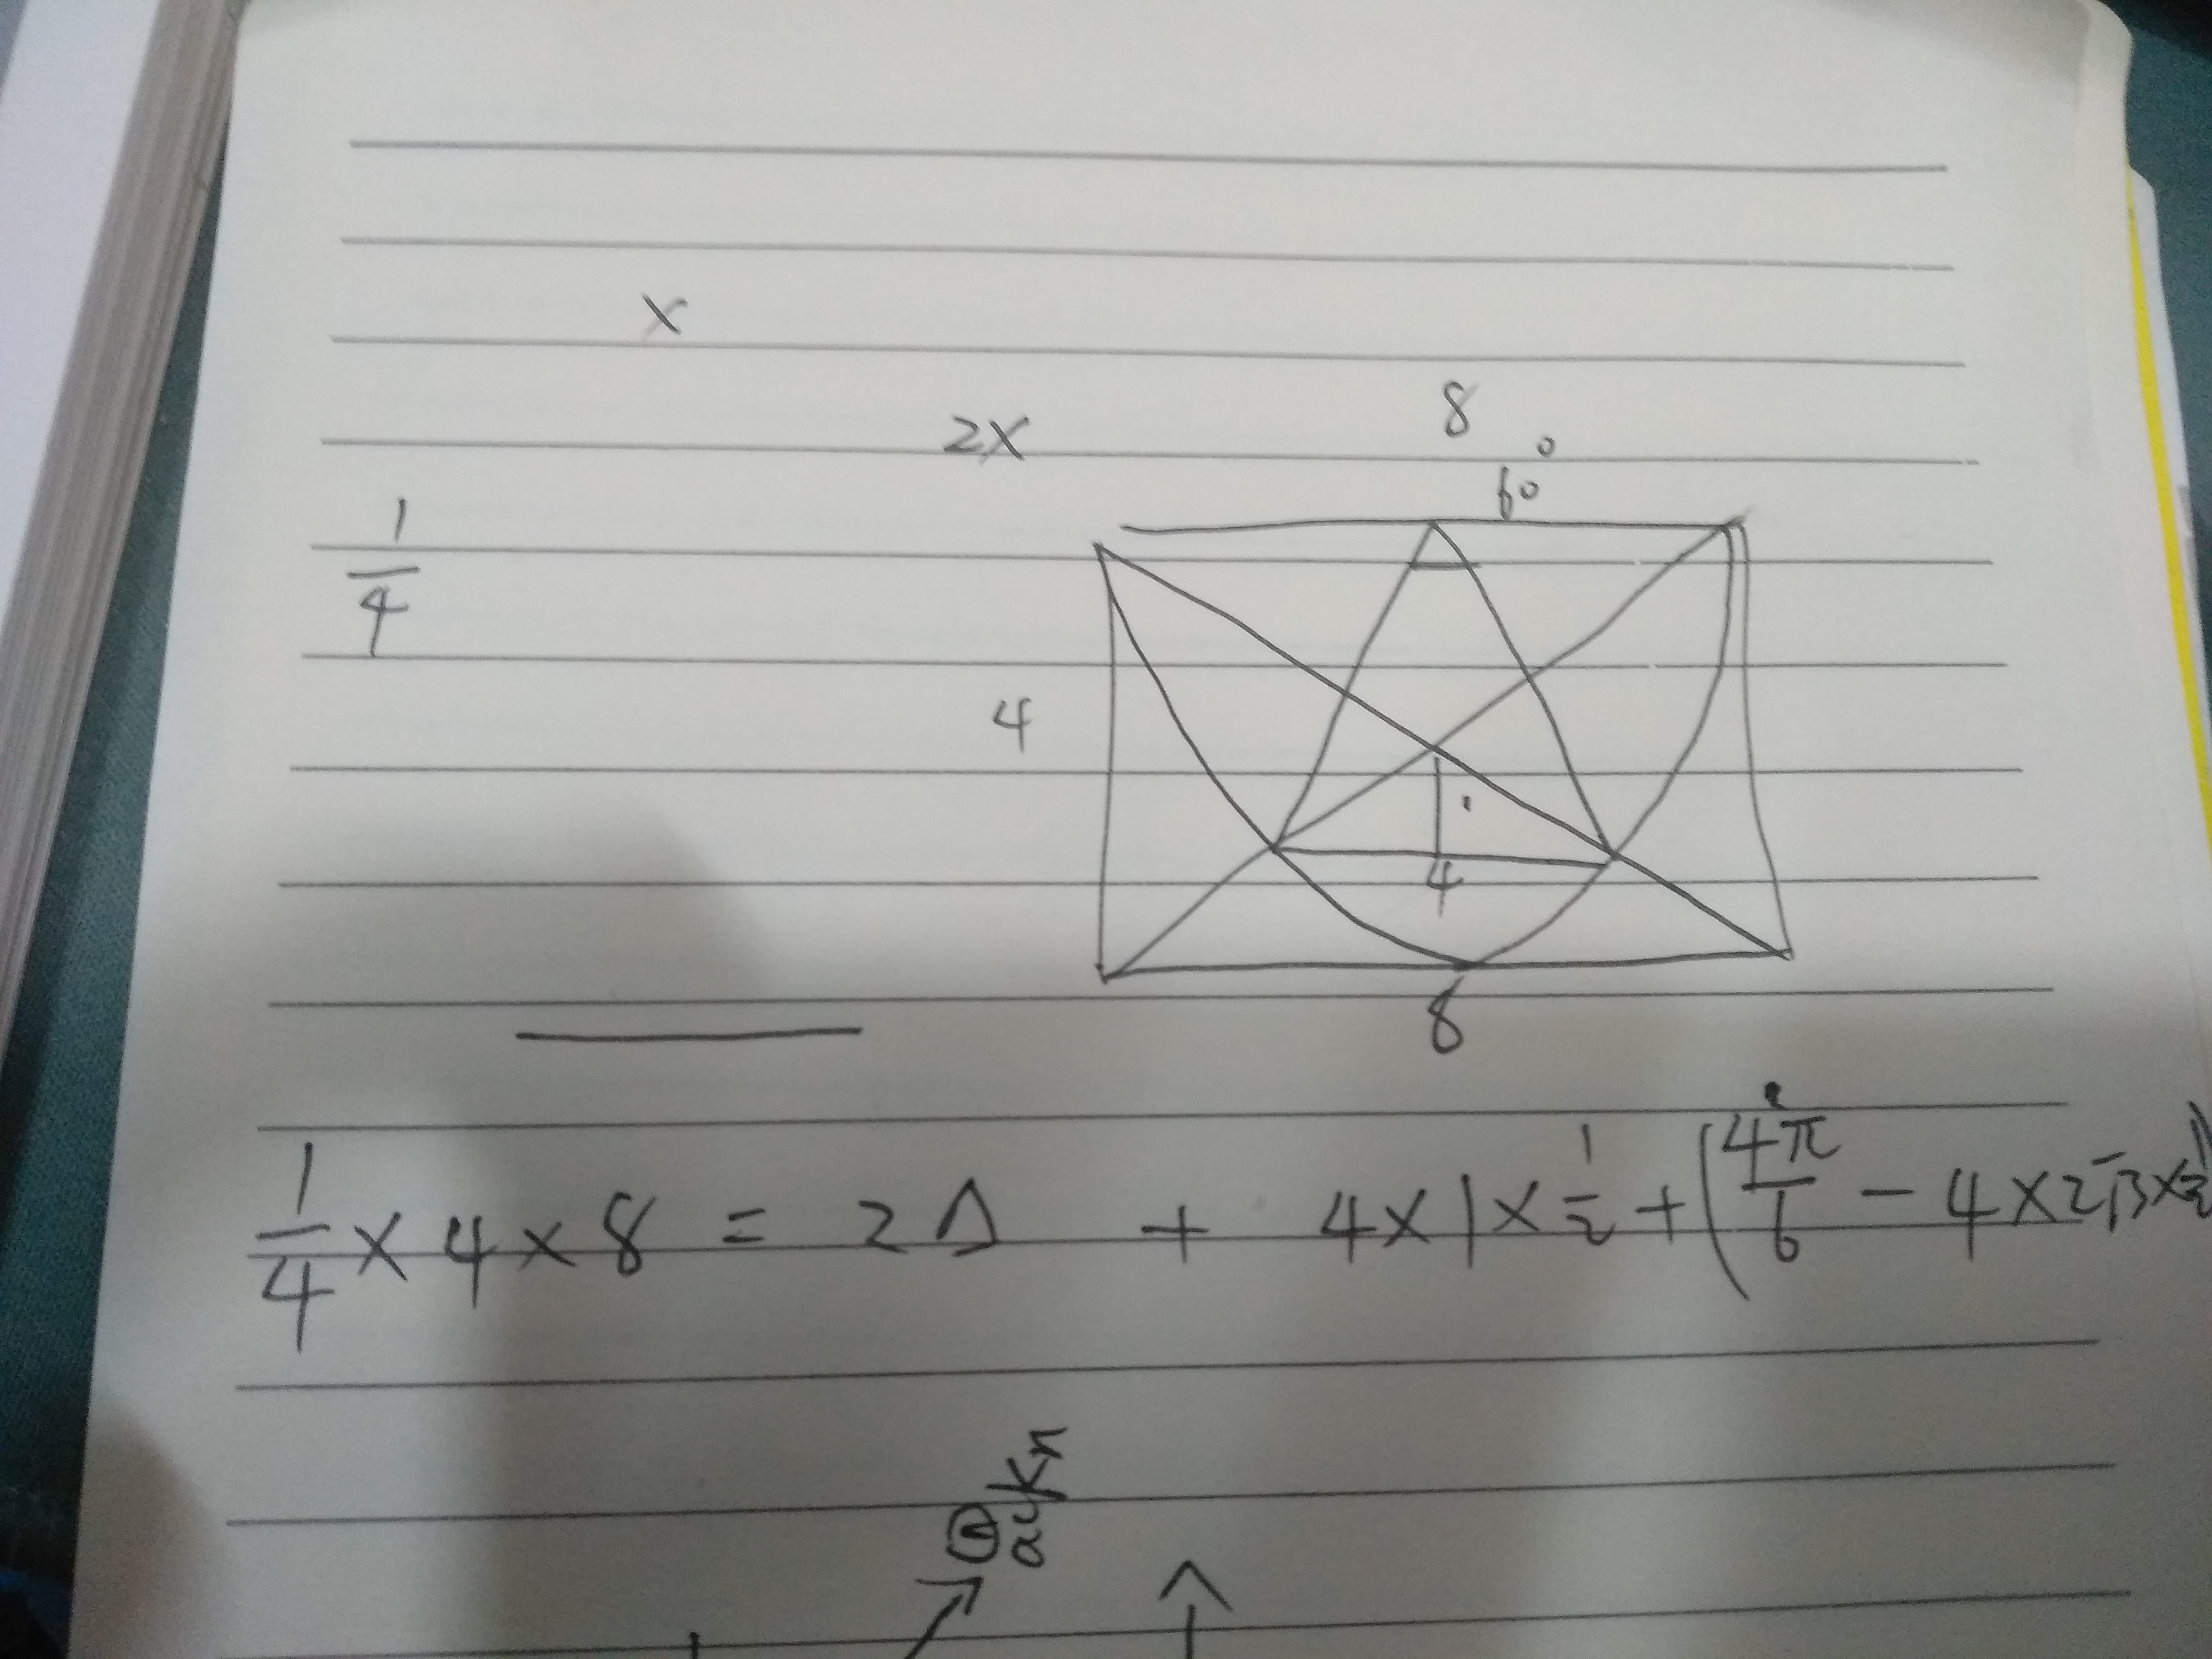 x
2x
8
60°
1/4
4
4
8
1/4 × 4 × 8 = 2△ + 4×1×1/2 + (4²π/6 − 4×2√3×1/2)